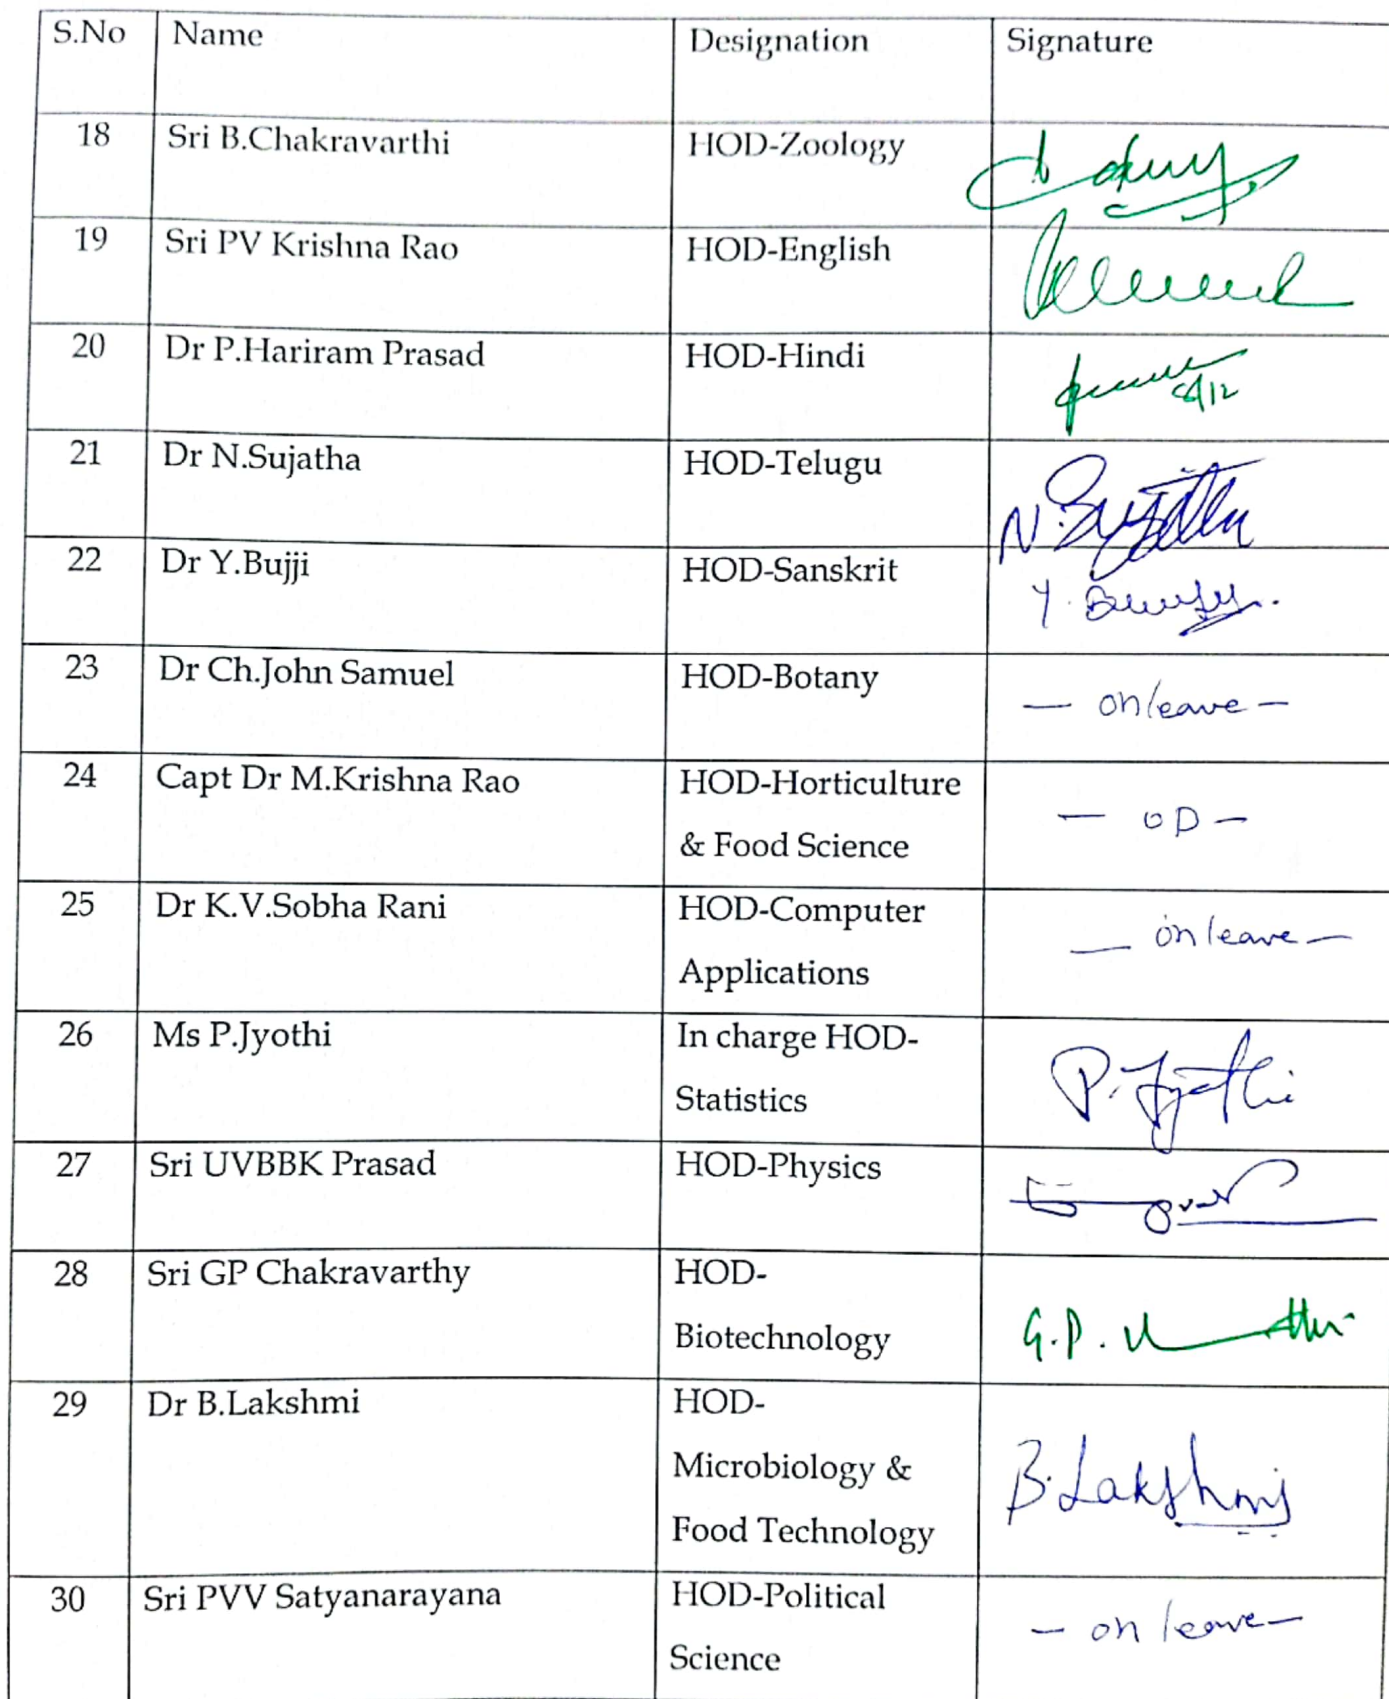 S.No Name Designation Signature
18 Sri B.Chakravarthi HOD-Zoology
19 Sri PV Krishna Rao HOD-English
20 Dr P.Hariram Prasad HOD-Hindi
8/12
21 Dr N.Sujatha HOD-Telugu N.Sujatha
22 Dr Y.Bujji HOD-Sanskrit
23 Dr Ch.John Samuel HOD-Botany — on leave —
24 Capt Dr M.Krishna Rao HOD-Horticulture
& Food Science — OD —
25 Dr K.V.Sobha Rani HOD-Computer — on leave —
Applications
26 Ms P.Jyothi In charge HOD- P.Jyothi
Statistics
27 Sri UVBBK Prasad HOD-Physics
28 Sri GP Chakravarthy HOD-
Biotechnology G.P.
29 Dr B.Lakshmi HOD-
Microbiology & B.Lakshmi
Food Technology
30 Sri PVV Satyanarayana HOD-Political — on leave —
Science